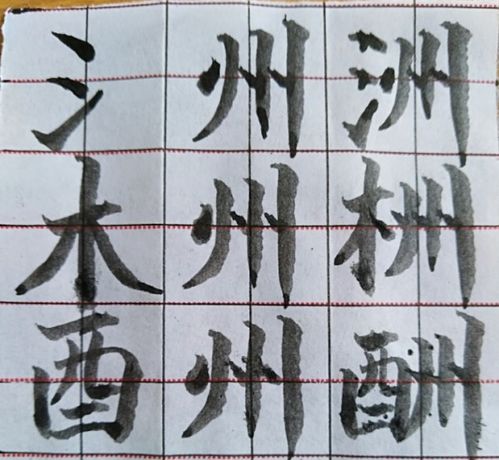 氵 州 洲
木 州 栦
酉 州 酬